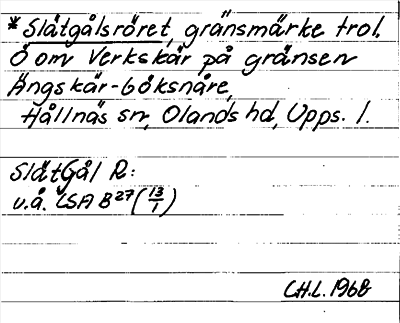 *Slätgålsröret, gränsmärke trol.
Ö om Verkskär på gränsen
Ängskär-böksnåre,
Hållnäs sn, Olands hd, Upps. l.
Slät Gål R:
u.å. LSA B27 (13/1)
C.H.L. 1968